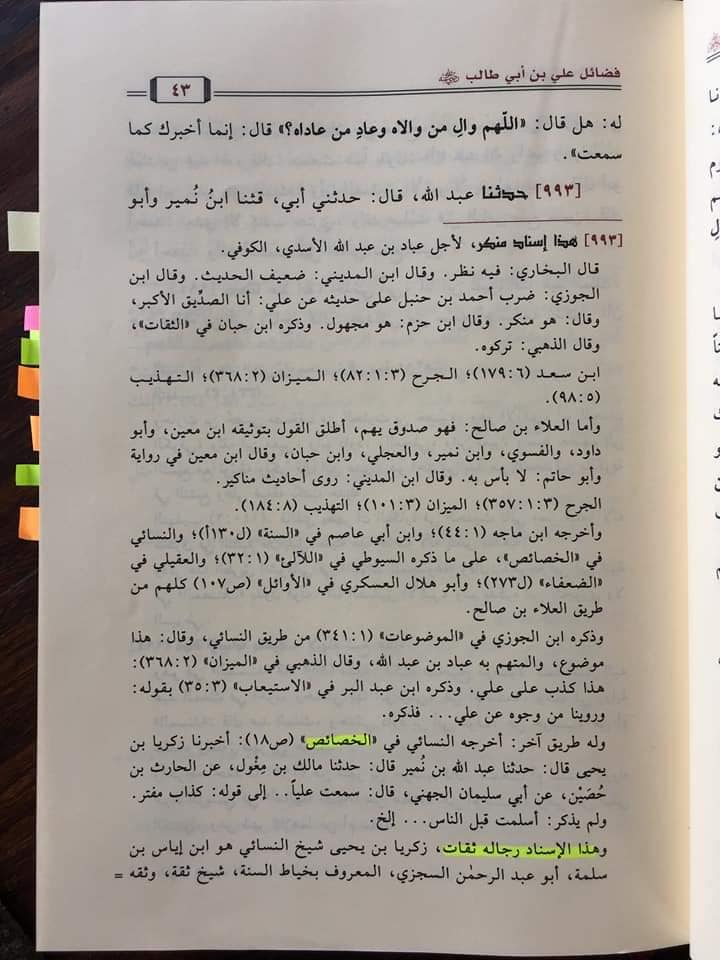 فضائل علي بن أبي طالب
٤٣
له: هل قال: «اللّهم والِ من والاه وعادِ من عاداه؟» قال: إنما أخبرك كما
سمعت».
[٩٩٣] حدثنا عبد الله، قال: حدثني أبي، قثنا ابنُ نُمير وأبو
[٩٩٣] هذا إسناد منكر، لأجل عباد بن عبد الله الأسدي، الكوفي.
قال البخاري: فيه نظر. وقال ابن المديني: ضعيف الحديث. وقال ابن
الجوزي: ضرب أحمد بن حنبل على حديثه عن علي: أنا الصدِّيق الأكبر،
وقال: هو منكر. وقال ابن حزم: هو مجهول. وذكره ابن حبان في «الثقات»،
وقال الذهبي: تركوه.
ابن سعد (٦: ١٧٩)؛ الجرح (٣: ١: ٨٢)؛ الميزان (٢: ٣٦٨)؛ التهذيب
(٥: ٩٨).
وأما العلاء بن صالح: فهو صدوق يهم، أطلق القول بتوثيقه ابن معين، وأبو
داود، والفسوي، وابن نمير، والعجلي، وابن حبان، وقال ابن معين في رواية
وأبو حاتم: لا بأس به. وقال ابن المديني: روى أحاديث مناكير.
الجرح (٣: ١: ٣٥٧)؛ الميزان (٣: ١٠١)؛ التهذيب (٨: ١٨٤).
وأخرجه ابن ماجه (١: ٤٤)؛ وابن أبي عاصم في «السنة» (ل١٣٠أ)؛ والنسائي
في «الخصائص»، على ما ذكره السيوطي في «اللآلئ» (١: ٣٢)؛ والعقيلي في
«الضعفاء» (ل٢٧٣)؛ وأبو هلال العسكري في «الأوائل» (ص١٠٧) كلهم من
طريق العلاء بن صالح.
وذكره ابن الجوزي في «الموضوعات» (١: ٣٤١) من طريق النسائي، وقال: هذا
موضوع، والمتهم به عباد بن عبد الله، وقال الذهبي في «الميزان» (٢: ٣٦٨):
هذا كذب على علي. وذكره ابن عبد البر في «الاستيعاب» (٣: ٣٥) بقوله:
وروينا من وجوه عن علي... فذكره.
وله طريق آخر: أخرجه النسائي في «الخصائص» (ص١٨): أخبرنا زكريا بن
يحيى قال: حدثنا عبد الله بن نُمير قال: حدثنا مالك بن مِغْول، عن الحارث بن
حُصَيْن، عن أبي سليمان الجهني، قال: سمعت علياً.. إلى قوله: كذاب مفتر.
ولم يذكر: أسلمت قبل الناس... إلخ.
وهذا الإسناد رجاله ثقات، زكريا بن يحيى شيخ النسائي هو ابن إياس بن
سلمة، أبو عبد الرحمٰن السجزي، المعروف بخياط السنة، شيخ ثقة، وثقه =